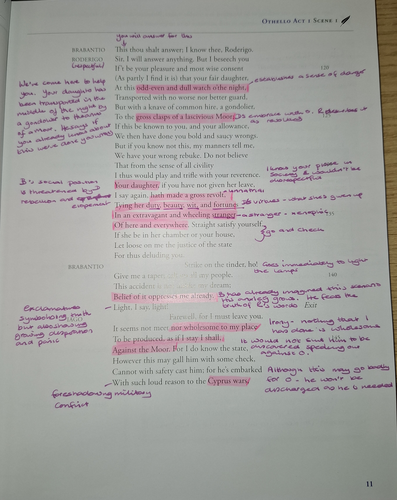 OTHELLO ACT 1 SCENE 1
you will answer for this
BRABANTIO This thou shalt answer; I know thee, Roderigo.
RODERIGO Sir, I will answer any thing. But I beseech you
If't be your pleasure and most wise consent 120
(As partly I find it is) that your fair daughter,
At this odd-even and dull watch o'the night,
establishes a sense of danger
Transported with no worse nor better guard,
But with a knave of common hire, a gondolier,
To the gross clasps of a lascivious Moor,
If this be known to you, and your allowance,
We then have done you bold and saucy wrongs.
But if you know not this, my manners tell me,
We have your wrong rebuke. Do not believe
That from the sense of all civility
I thus would play and trifle with your reverence.
Your daughter, if you have not given her leave,
I say again, hath made a gross revolt,
Tying her duty, beauty, wit, and fortunes
In an extravagant and wheeling stranger
Of here and everywhere. Straight satisfy yourself.
If she be in her chamber or your house,
Let loose on me the justice of the state
For thus deluding you.
We've come here to help
you. Your daughter has
been transported in the
middle of the night by
a gondolier to
of a moor.
you already knew about
I know your place in
society & wouldn't be
stranger
go and check
B's social position
is threatened by
BRABANTIO Strike on the tinder, ho!
Goes immediately to light
the lamps
Give me a taper, call up all my people. 140
This accident is not unlike my dream;
Belief of it oppresses me already.
Light, I say, light! Exit
B has already imagined this scenario
truth of R's words
IAGO Farewell, for I must leave you.
It seems not meet, nor wholesome to my place
To be produced, as if I stay I shall,
Against the Moor. For I do know the state,
However this may gall him with some check,
Cannot with safety cast him; for he's embarked
With such loud reason to the Cyprus wars,
Exclamatives
symbolising truth
growing desperation
and panic
Irony - nothing that I
has done is wholesome
discovered speaking out
against O.
Although this may go badly
for O - he won't be
discharged as he is needed
foreshadowing military
conflict
11